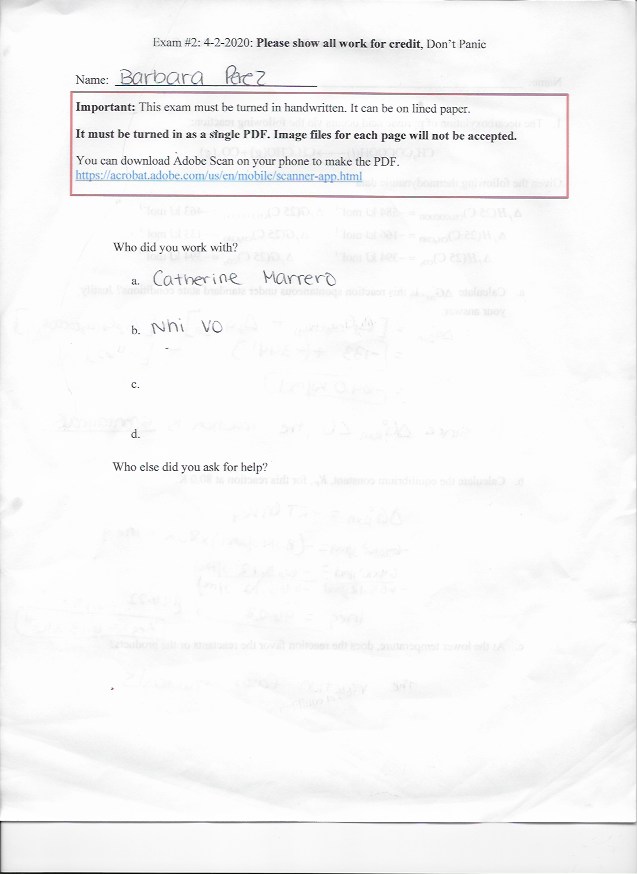 Exam #2: 4-2-2020: Please show all work for credit, Don't Panic
Name: Barbara Perez
Important: This exam must be turned in handwritten. It can be on lined paper.
It must be turned in as a single PDF. Image files for each page will not be accepted.
You can download Adobe Scan on your phone to make the PDF.
https://acrobat.adobe.com/us/en/mobile/scanner-app.html
Who did you work with?
a. Catherine Marrero
b. Nhi Vo
c.
d.
Who else did you ask for help?